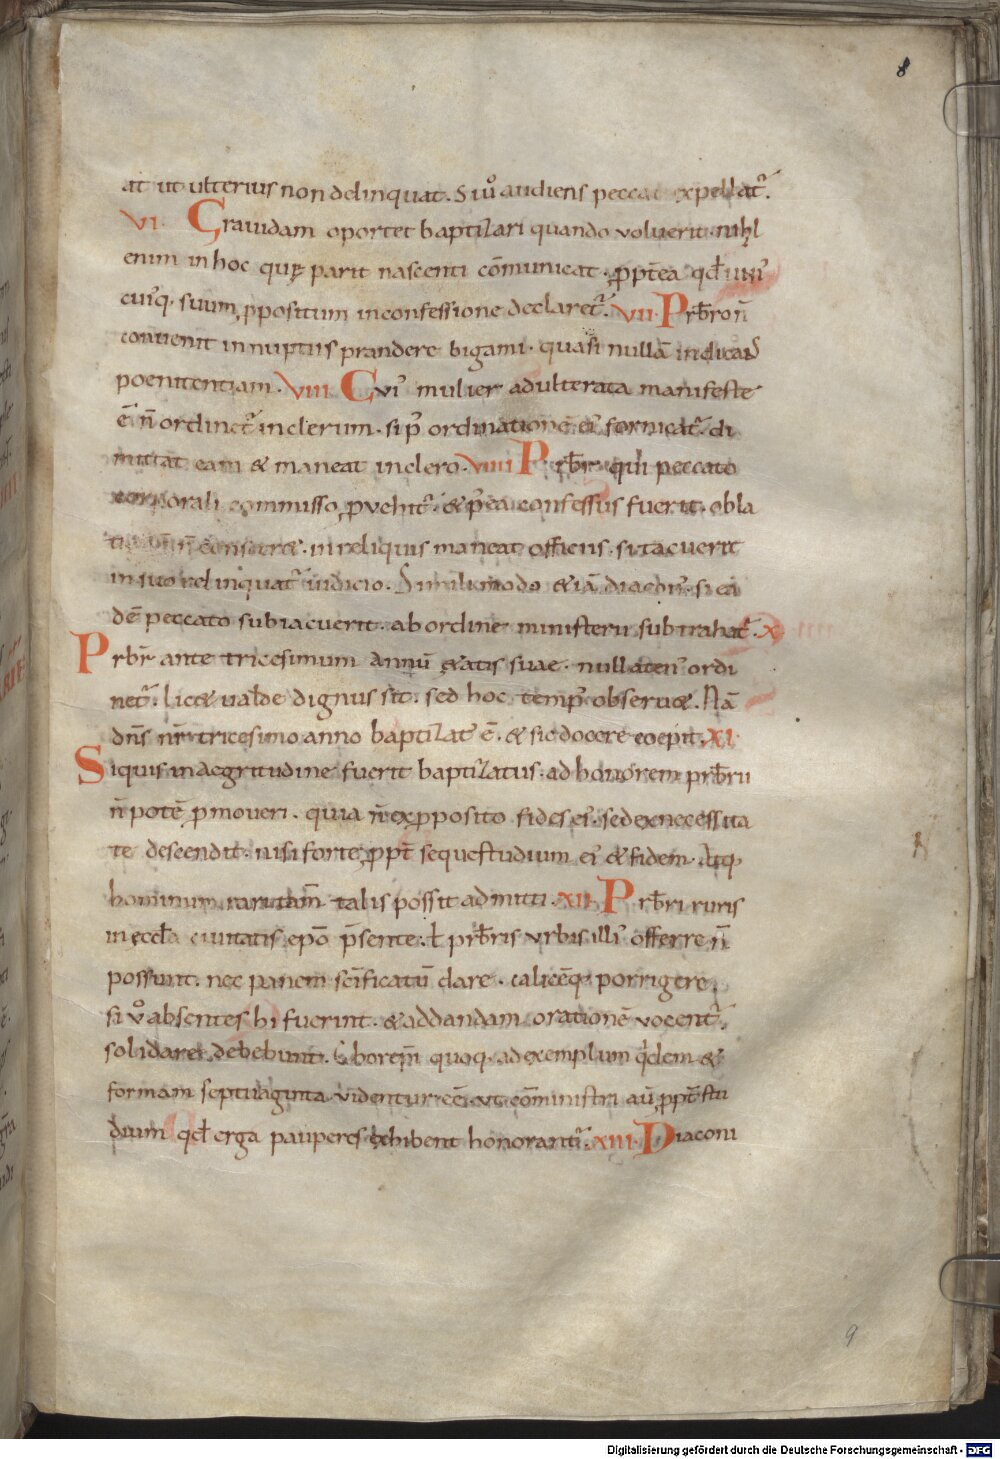 8
at ut ulterius non delinquat. Si uº audiens peccat expellat᷑.
VI. Grauidam oportet baptizari quando voluerit. nihl
enim in hoc quę parit nascenti cōmunicat. ꝓpt̄ea qd̄ uni᾽
cui᾽q. suum ꝓpositum in confessione declaret᷑. VII. Prb̄ro n̄
conuenit in nuptiis prandere bigami. quasi nullā indicās
poenitentiam. VIII Cui᾽ mulier adulterata manifeste
ē n̄ ordinet᷑ in clerum. si p᾽ ordinationē ei᾽ fornicat᷑. di
mittat eam & maneat in clero. VIIII Prb̄r qui peccato
corporali commisso ꝓvehit᷑. & p᾽ea confessus fuerit. obla
n̄ consecr&. in reliquis maneat officiis. si tacuerit
in suo relinquat᷑ iudicio. Simili modo &iā diacon᾽. si eā
dē peccato subiacuerit. ab ordine ministerii subtrahat᷑. X
Prb̄r ante tricesimum annū &atis suae. nullaten᾽ ordi
net᷑. lic& ualde dignus sit. sed hoc temp᾽ obseru&. Nā
dn̄s nr̄ tricesimo anno baptizat᾽ ē. & sic docere coepit. XI.
Siquis in aegritudine fuerit baptizatus. ad honorem prb̄rii
n̄ potē ꝓmoveri. quia n̄ ex ꝓposito fides ei᾽. sed ex necessita
te descendit. nisi forte ꝓpt̄ seque studium ei᾽ & fidem. atq.
hominum raritatem talis possit admitti. XII. Prb̄ri ruris
in ęccl̄a ciuitatis epō p̄sente. ł prb̄ris urbis illi᾽ offerre n̄
possunt. nec panem sc̄ificatū dare. calicēq. porrigere.
si uº absentes hi fuerint. & ad dandam orationē vocent᷑.
soli dare debebunt. Chorep̄i quoq. ad exemplum qdem &
formam septuaginta videntur eē. ut cōministri au᷑ ꝓpt̄ stu
dium qd̄ erga pauperes exhibent honorant᷑. XIII. Diaconi
9
Digitalisierung gefördert durch die Deutsche Forschungsgemeinschaft - DFG